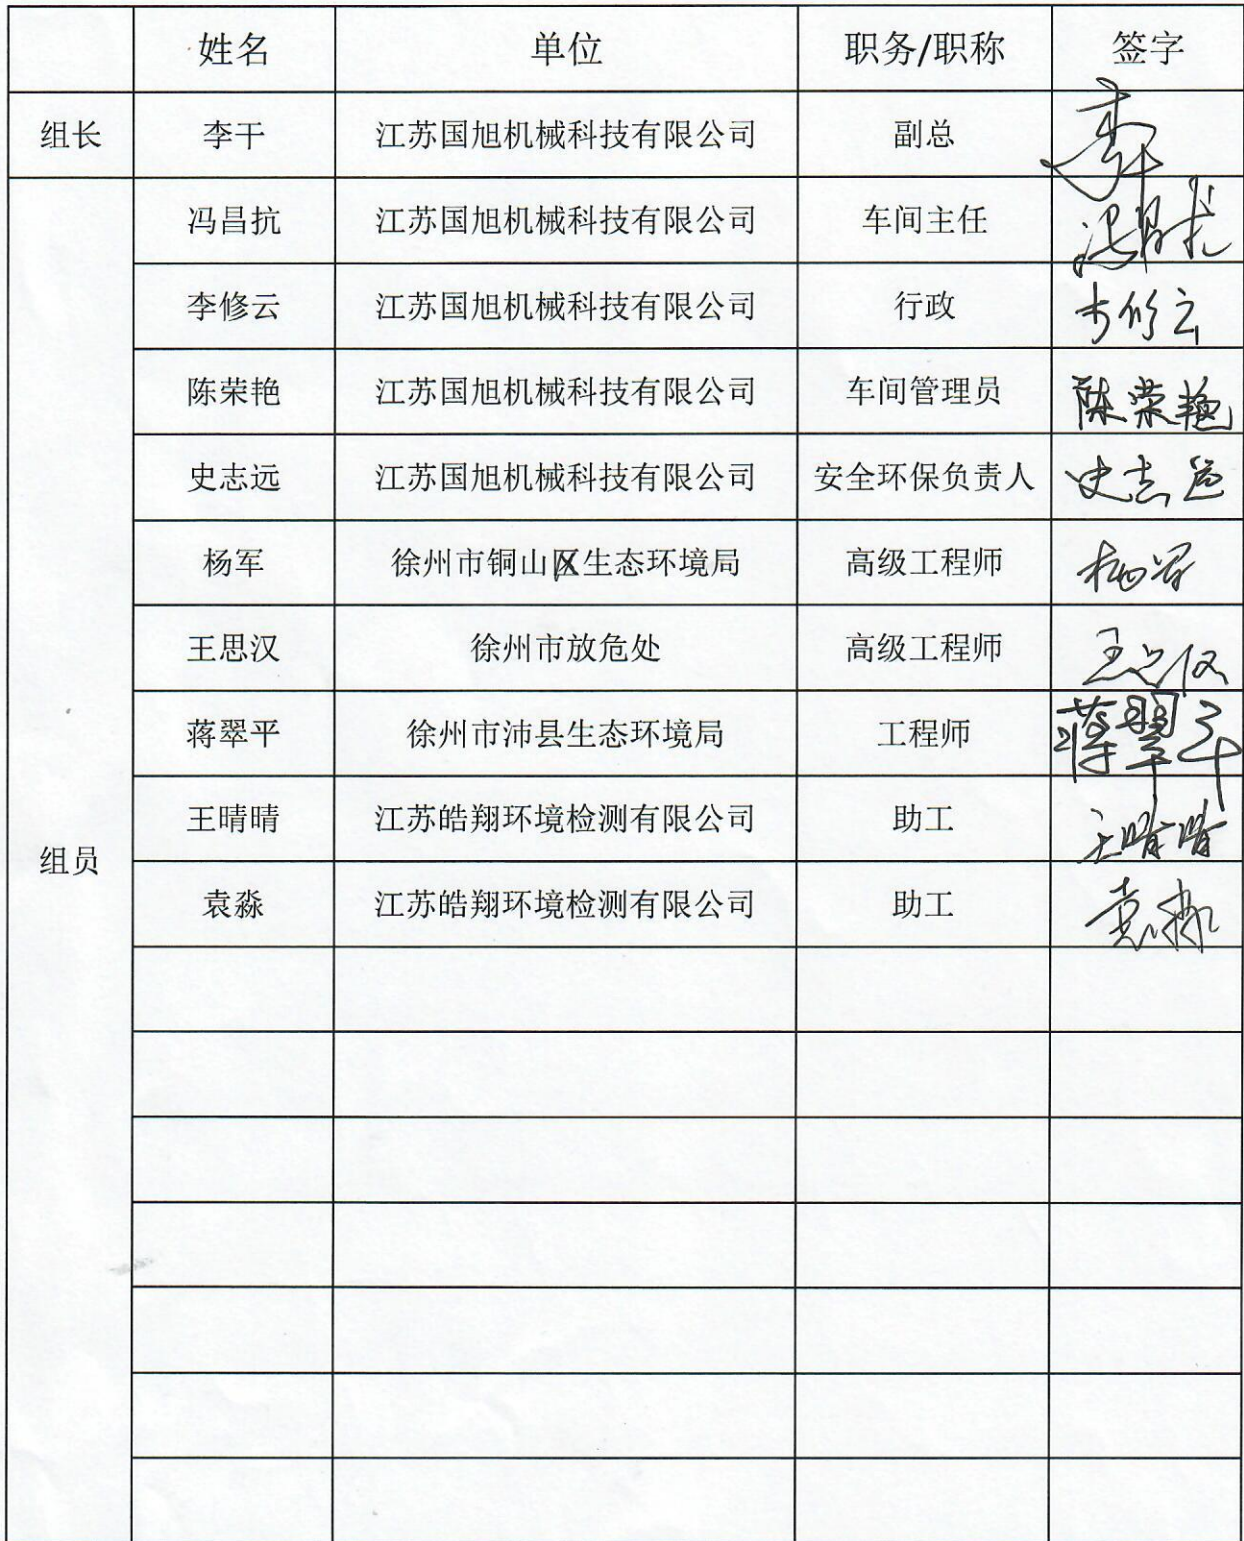 姓名 单位 职务/职称 签字
组长 李干 江苏国旭机械科技有限公司 副总 李干
冯昌抗 江苏国旭机械科技有限公司 车间主任 冯昌抗
李修云 江苏国旭机械科技有限公司 行政 李修云
陈荣艳 江苏国旭机械科技有限公司 车间管理员 陈荣艳
史志远 江苏国旭机械科技有限公司 安全环保负责人 史志远
杨军 徐州市铜山区生态环境局 高级工程师 杨军
王思汉 徐州市放危处 高级工程师 王思汉
蒋翠平 徐州市沛县生态环境局 工程师 蒋翠平
王晴晴 江苏皓翔环境检测有限公司 助工 王晴晴
组员
袁淼 江苏皓翔环境检测有限公司 助工 袁淼